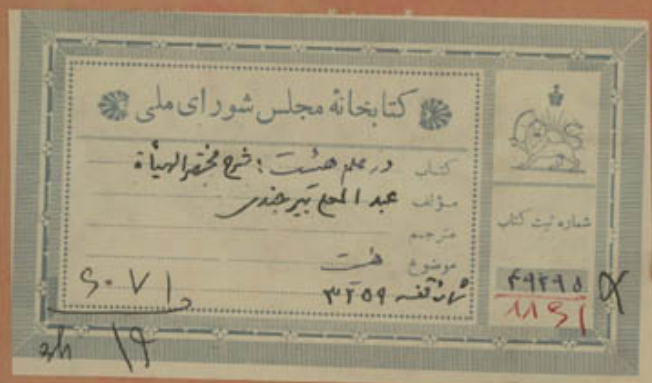 کتابخانهٔ مجلس شورای ملی
کتاب در علم هیئت : شرح مختصر الهیأة
مؤلف عبد العلی بیرجندی
مترجم
موضوع هیئت
شماره قفسه ۳۲۵۹
شماره ثبت کتاب
۴۹۲۹۵